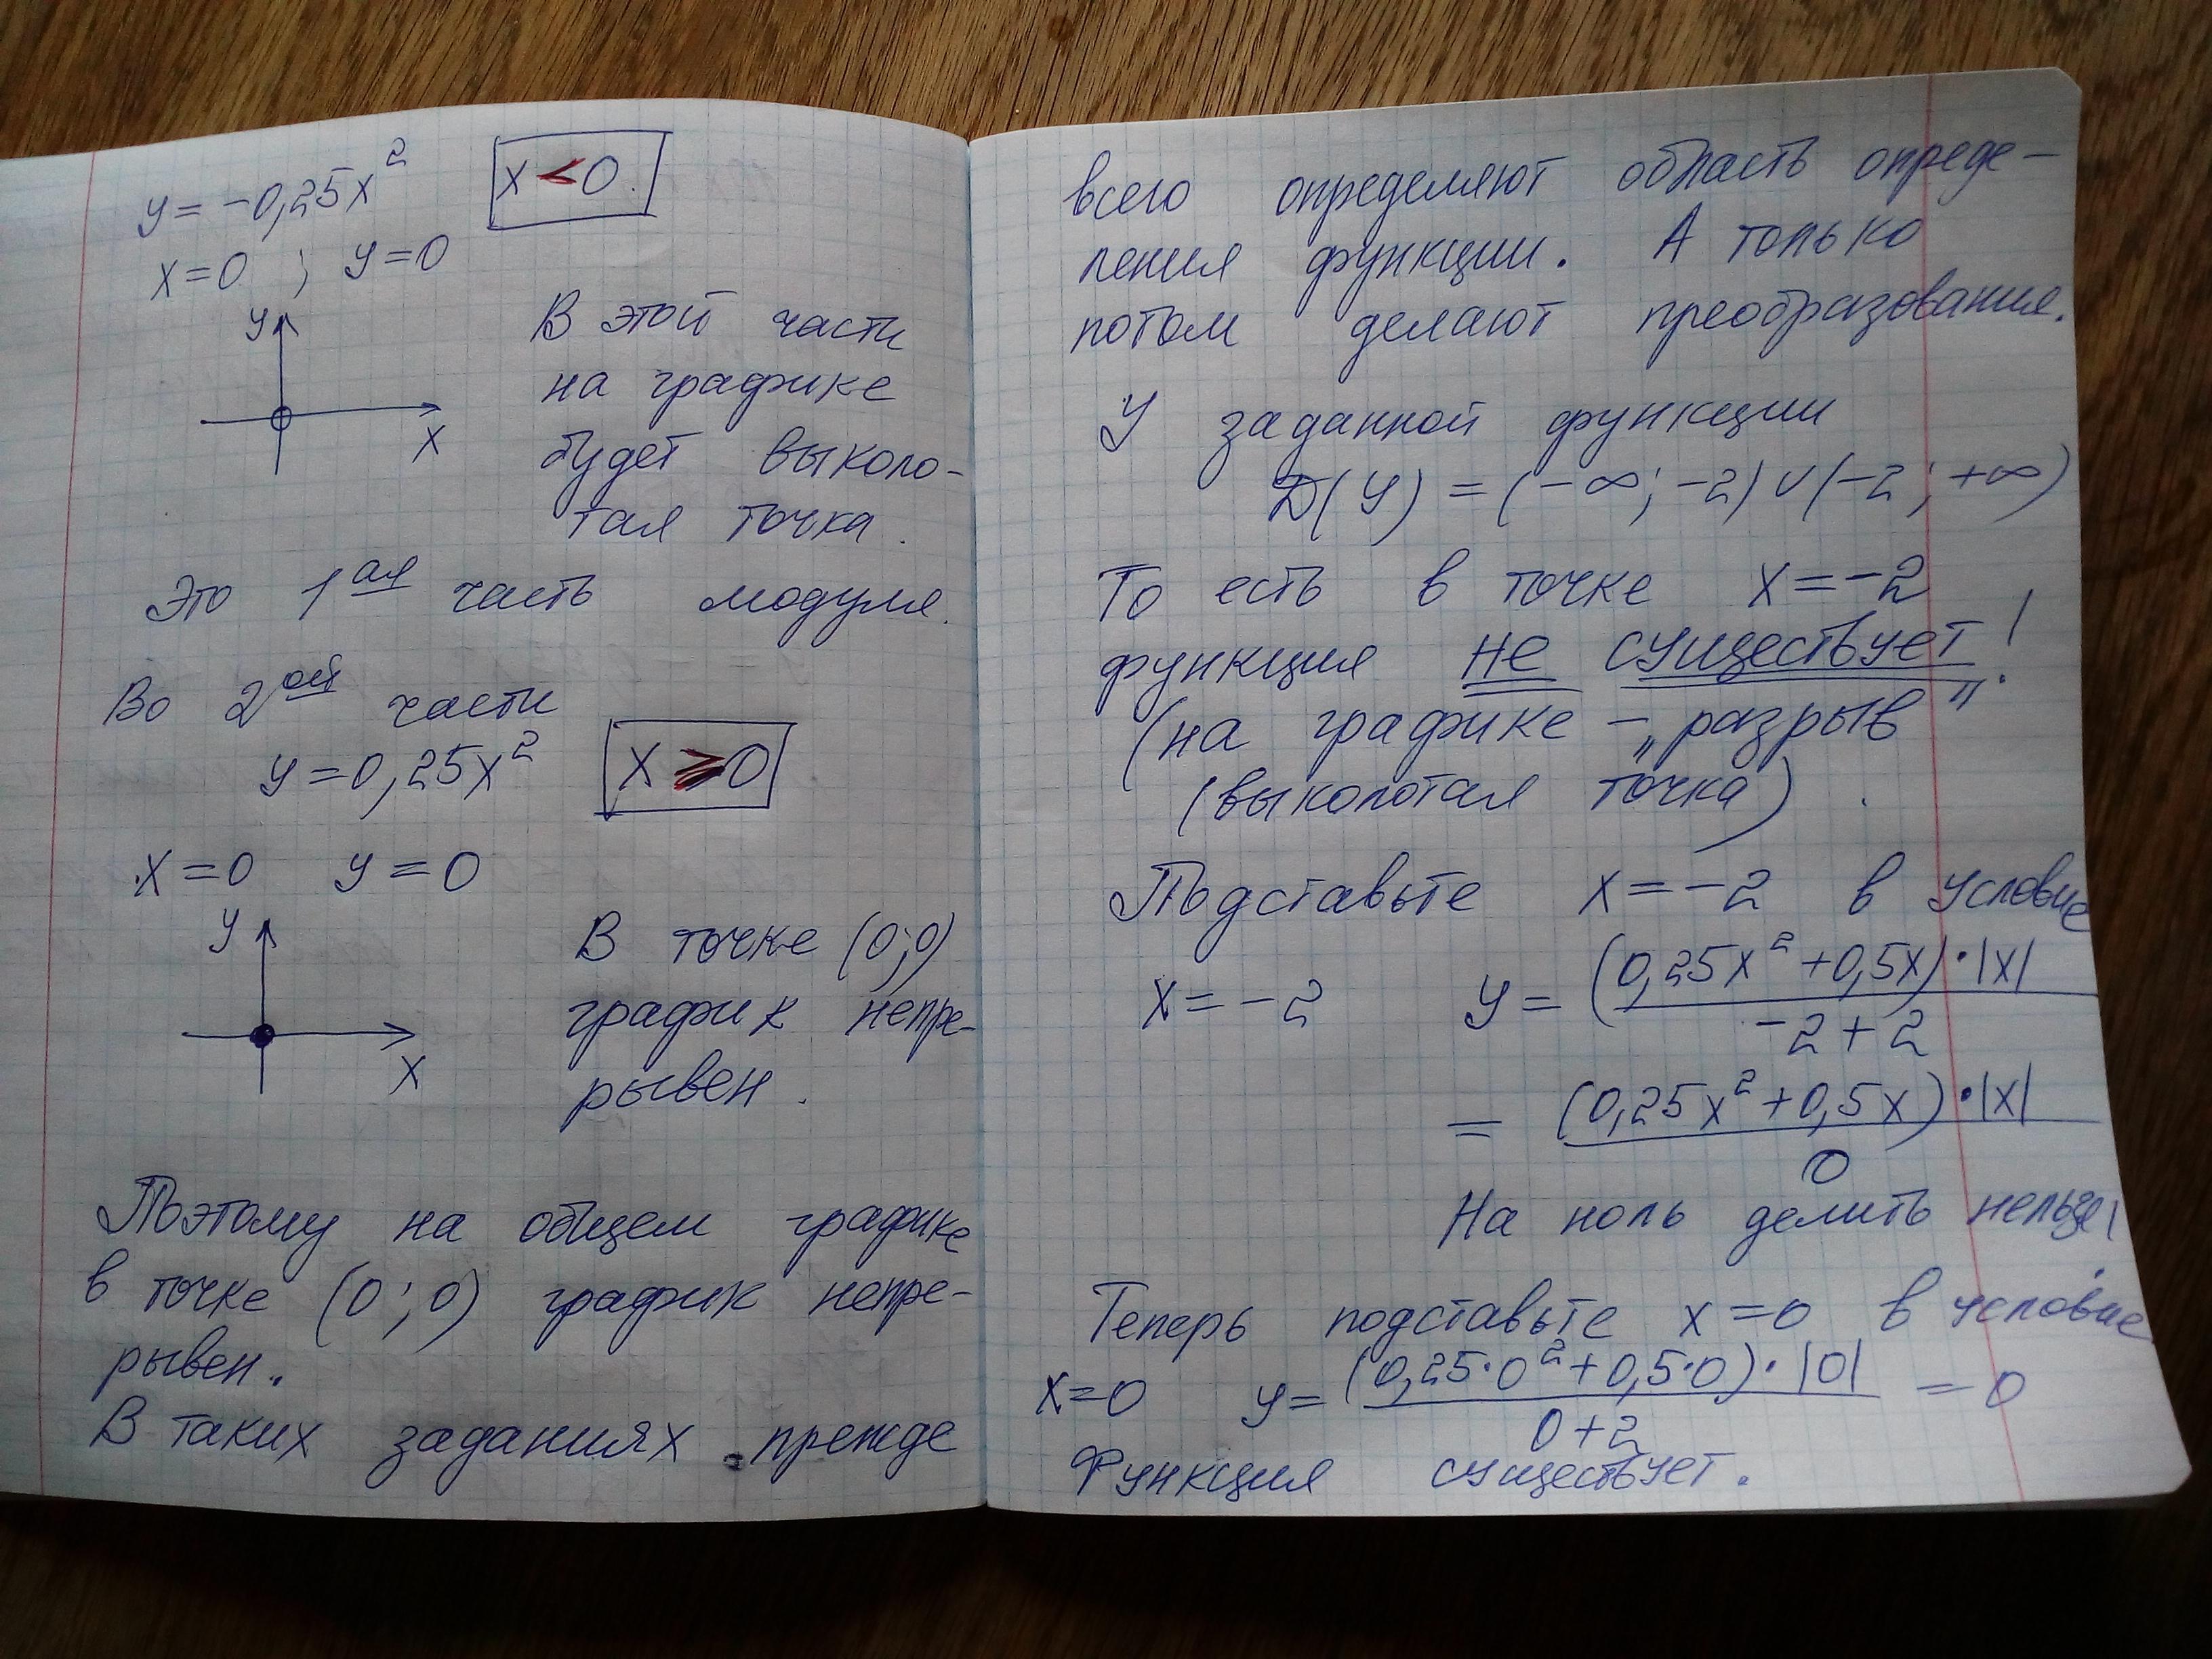 y = -0,25x² x < 0.
x = 0 ; y = 0
y
x
В этой части
на графике
будет выколо-
тая точка.
Это 1ая часть модуля.
Во 2ой части
y = 0,25x² x ⩾ 0
x = 0 y = 0
y
x
В точке (0;0)
график непре-
рывен.
Поэтому на общем графике
в точке (0;0) график непре-
рывен.
В таких заданиях прежде
всего определяют область опреде-
ления функции. А только
потом делают преобразования.
У заданной функции
D(y) = (-∞; -2) ∪ (-2; +∞)
То есть в точке x = -2
функция не существует!
(на графике - „разрыв"
(выколотая точка)).
Подставьте x = -2 в условие
x = -2 y = (0,25x² + 0,5x)·|x|
-2 + 2
= (0,25x² + 0,5x)·|x|
0
На ноль делить нельзя!
Теперь подставьте x = 0 в условие
x = 0 y = (0,25·0² + 0,5·0)·|0| = 0
0 + 2
Функция существует.